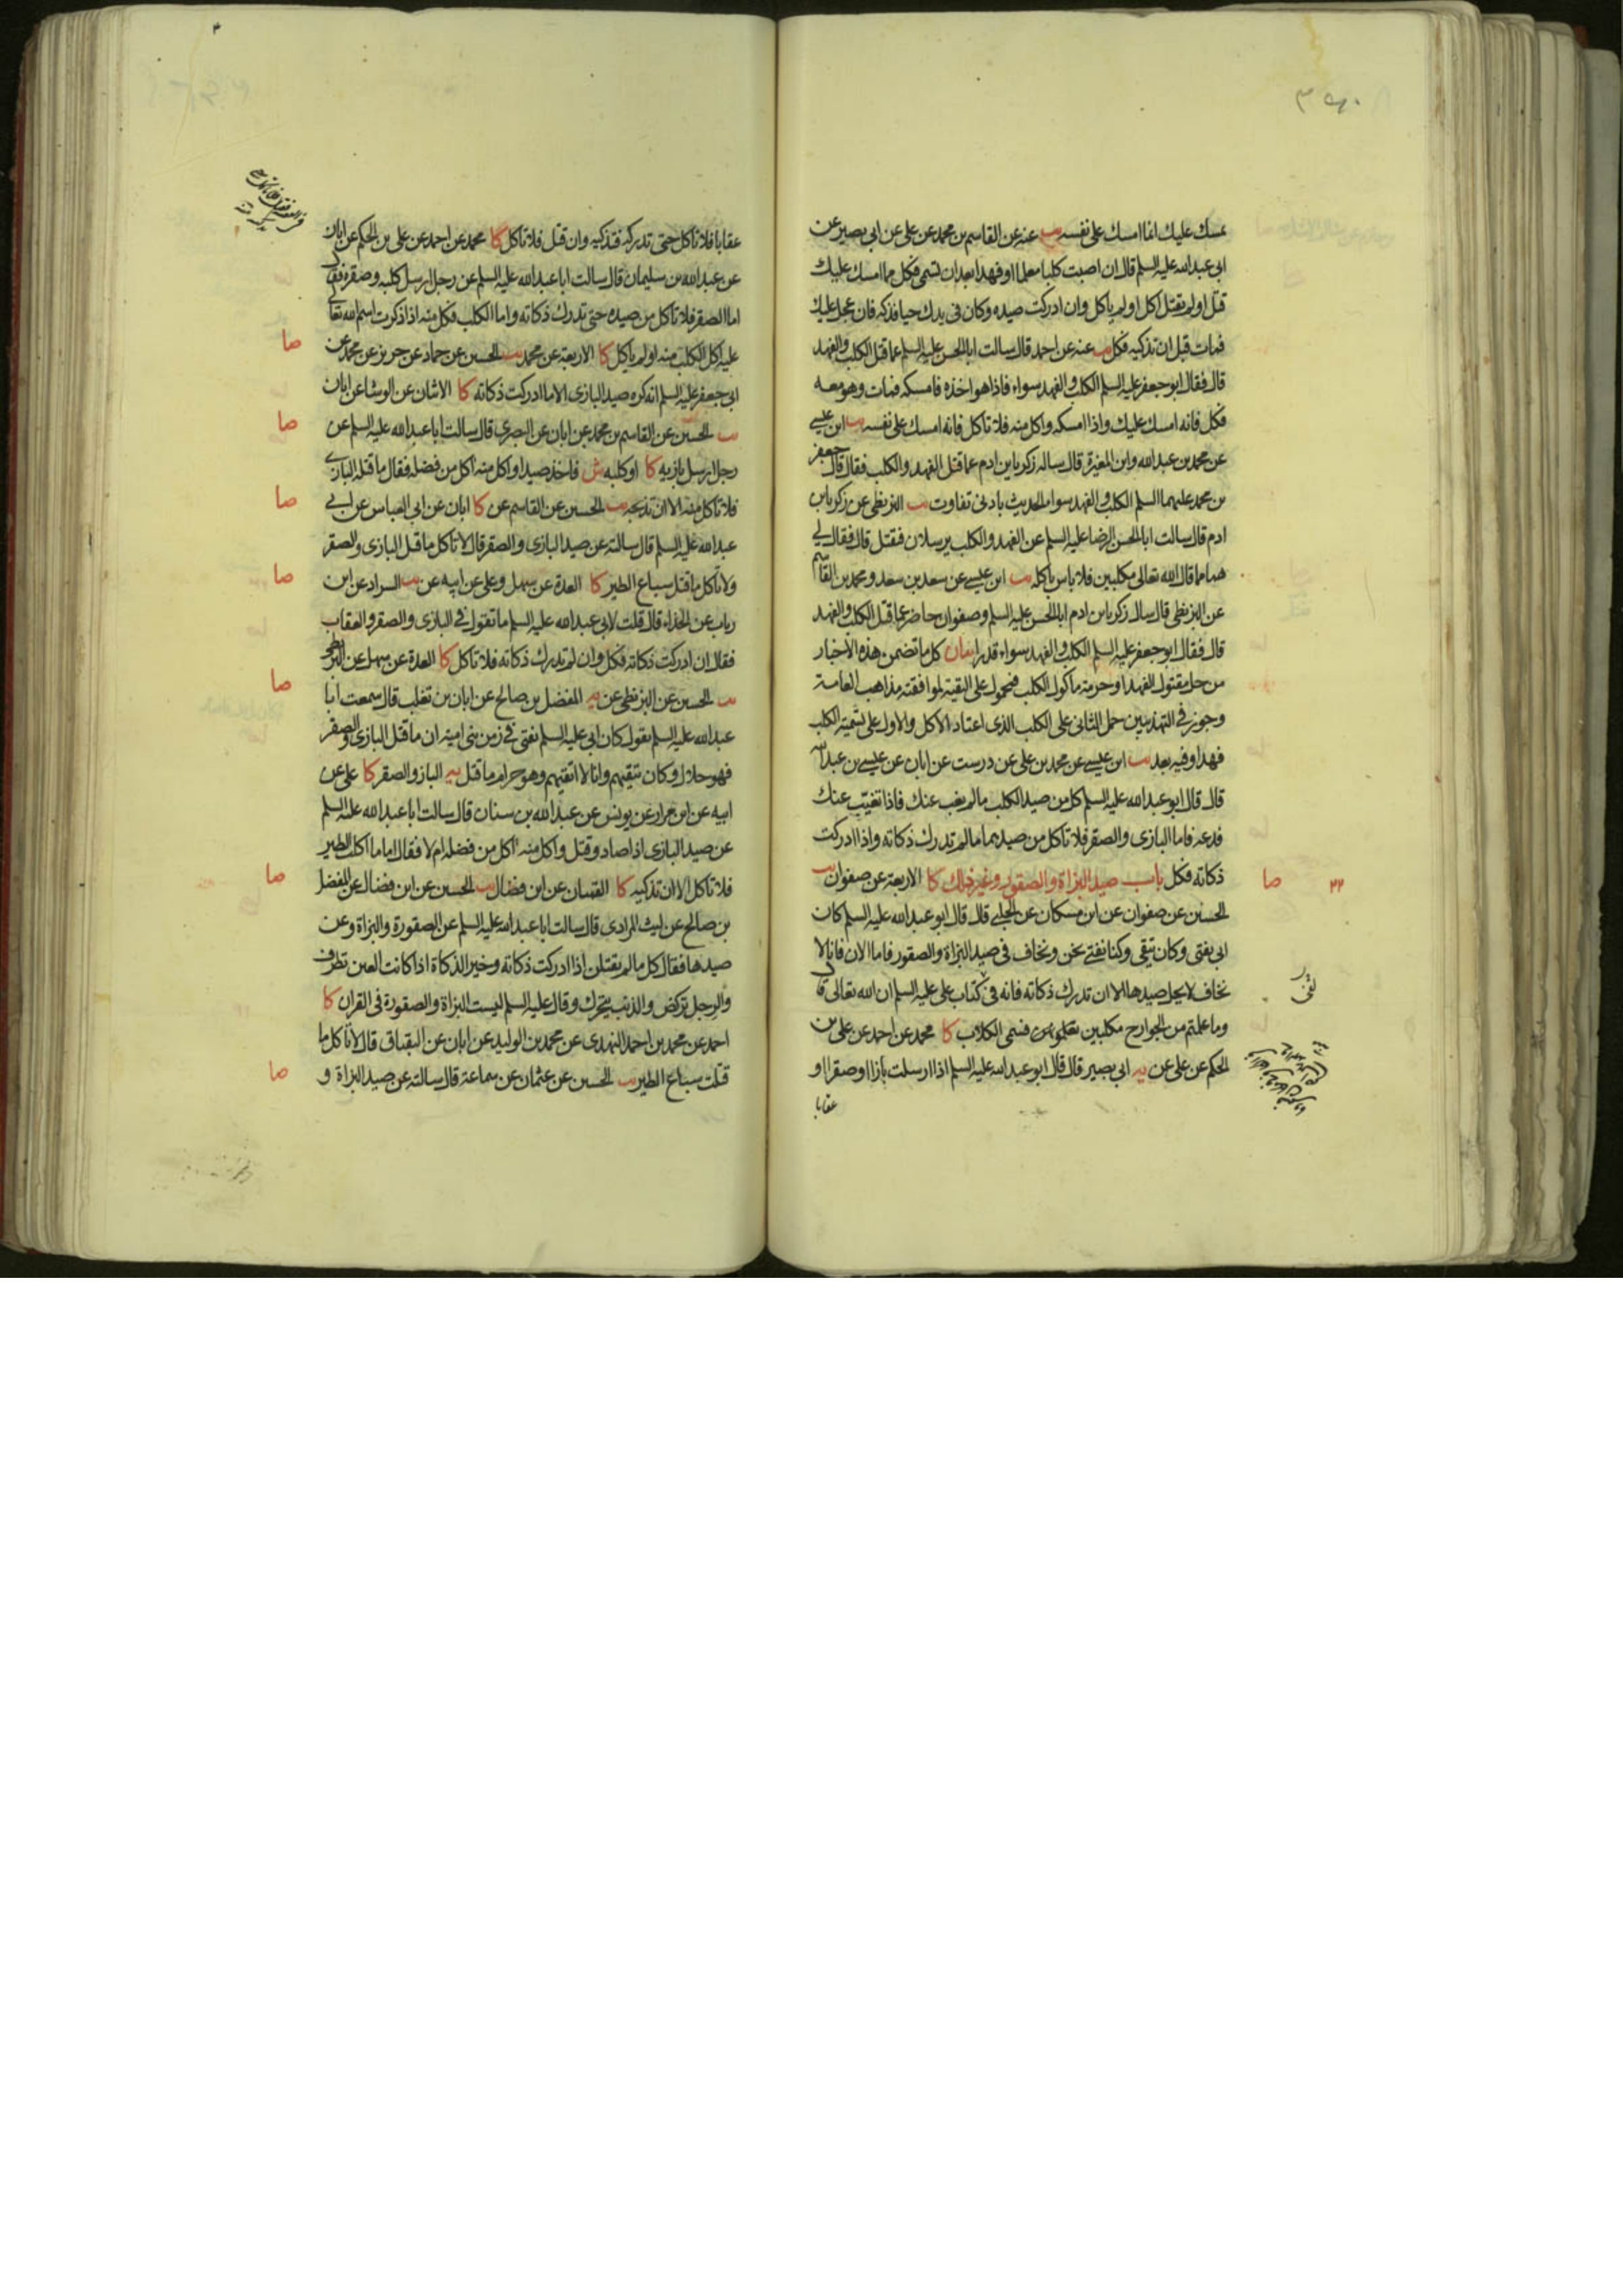 يمسك عليك انما امسك على نفسه يب عنه عن القاسم بن محمد عن على عن ابى بصير عن
ابى عبدالله عليه السلم قال ان اصبت كلبا معلما او فهدا بعد ان تسمى فكل مما امسك عليك
قتل او لم يقتل اكل او لم ياكل وان ادركت صيده وكان فى يدك حيا فذكه فان عجل عليك
فمات قبل ان تذكيه فكل يب عنه عن احمد قال سالت ابا الحسن عليه السلم عما قتل الكلب والفهد
قال فقال ابو جعفر عليه السلم الكلب والفهد سواء فاذا هو اخذه فامسكه فمات وهو معه
فكل فانه امسك عليك واذا امسكه واكل منه فلا تاكل فانه امسك على نفسه يب ابن عيسى
عن محمد بن عبدالله وابن المغيرة قال ساله زكريا بن ادم عما قتل الفهد والكلب فقال قال جعفر
بن محمد عليهما السلم الكلب والفهد سواء الحديث بادنى تفاوت يب البزنطى عن زكريا بن
ادم قال سالت ابا الحسن الرضا عليه السلم عن الفهد والكلب يرسلان فقتل قال فقال لى
هما مما قال الله تعالى مكلبين فلا باس باكله يب ابن عيسى عن سعد بن سعد ومحمد بن القاسم
عن البزنطى قال سال زكريا بن ادم ابا الحسن عليه السلم وصفوان حاضر عما قتل الكلب والفهد
قال فقال ابو جعفر عليه السلم الكلب والفهد سواء قدرا بيان كل ما تضمن هذه الاخبار
من حل مقتول الفهد او حرمة ماكول الكلب فمحمول على التقية لموافقته مذاهب العامة
وجوز فى التهذيبين حمل الثانى على الكلب الذى اعتاد الاكل والاول على تسمية الكلب
فهدا وفيه بعد يب ابن عيسى عن محمد بن على عن درست عن ابان عن عيسى بن عبدالله
قال قال ابو عبدالله عليه السلم كل من صيد الكلب ما لم يغب عنك فاذا تغيب عنك
فدعه فاما البازى والصقر فلا تاكل من صيدهما ما لم تدرك ذكاته واذا ادركت
ذكاته فكل باب صيد البزاة والصقور وغير ذلك كا الاربعة عن صفوان يب
الحسين عن صفوان عن ابن مسكان عن الحلبى قال قال ابو عبدالله عليه السلم كان
ابى يفتى وكان يتقى وكنا نفتى نحن ونخاف فى صيد البزاة والصقور فاما الان فانا لا
نخاف لا يحل صيدها الا ان تدرك ذكاته فانه فى كتاب على عليه السلم ان الله تعالى قال
وما علمتم من الجوارح مكلبين تعلمونهن فسمى الكلاب كا محمد عن احمد عن على بن
الحكم عن على عن يه ابى بصير قال قال ابو عبدالله عليه السلم اذا ارسلت بازا او صقرا او
عقابا
صا
٢٢
عقابا فلا تاكل حتى تدركه فتذكيه وان قتل فلا تاكل كا محمد عن احمد عن على بن الحكم عن ابان
عن عبدالله بن سليمان قال سالت ابا عبدالله عليه السلم عن رجل ارسل كلبه وصقره فقال
اما الصقر فلا تاكل من صيده حتى تدرك ذكاته واما الكلب فكل منه اذا ذكرت اسم الله تعالى
عليه اكل الكلب منه او لم ياكل كا الاربعة عن محمد يب الحسين عن حماد عن حريز عن محمد عن
ابى جعفر عليه السلم انه كره صيد البازى الا ما ادركت ذكاته كا الاثنان عن الوشا عن ابان
يب الحسين عن القاسم بن محمد عن ابان عن البصرى قال سالت ابا عبدالله عليه السلم عن
رجل ارسل بازيه كا او كلبه ش فاخذ صيدا واكل منه اكل من فضله فقال ما قتل البازى
فلا تاكل منه الا ان تذبحه يب الحسين عن القاسم عن كا ابان عن ابى العباس عن ابى
عبدالله عليه السلم قال سالته عن صيد البازى والصقر قال لا تاكل ما قتل البازى والصقر
ولا تاكل ما قتل سباع الطير كا العدة عن سهل وعلى عن ابيه عن يب السراد عن ابن
رياب عن الحذاء قال قلت لابى عبدالله عليه السلم ما تقول فى البازى والصقر والعقاب
فقال ان ادركت ذكاته فكل وان لم تدرك ذكاته فلا تاكل كا العدة عن سهل عن البزنطى
يب الحسين عن البزنطى عن يه المفضل بن صالح عن ابان بن تغلب قال سمعت ابا
عبدالله عليه السلم يقول كان ابى عليه السلم يفتى فى زمن بنى امية ان ما قتل البازى والصقر
فهو حلال وكان يتقيهم وانا لا اتقيهم وهو حرام ما قتل يه الباز والصقر كا على عن
ابيه عن ابن مرار عن يونس عن عبدالله بن سنان قال سالت ابا عبدالله عليه السلم
عن صيد البازى اذا صاد وقتل واكل منه اكل من فضله ام لا فقال اما ما اكلت الطير
فلا تاكل الا ان تذكيه كا القميان عن ابن فضال يب الحسين عن ابن فضال عن المفضل
بن صالح عن ليث المرادى قال سالت ابا عبدالله عليه السلم عن الصقورة والبزاة وعن
صيدها فقال كل ما لم يقتلن اذا ادركت ذكاته وخير الذكاة اذا كانت العين تطرف
والرجل تركض والذنب يتحرك وقال عليه السلم ليست البزاة والصقورة فى القران كا
احمد عن محمد بن احمد النهدى عن محمد بن الوليد عن ابان عن البقباق قال لا تاكل ما
قتلت سباع الطير يب الحسين عن عثمان عن سماعة قال سالته عن صيد البزاة و
صا
صا
صا
صا
صا
صا
صا